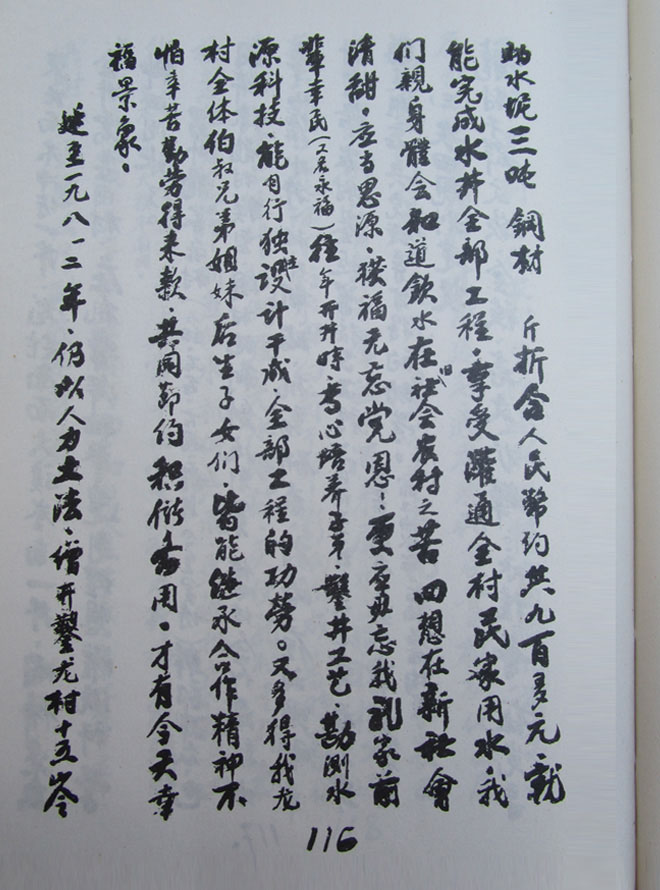 助水坭三吨 鋼材 斤折合人民幣約共九百多元.就
能完成水井全部工程.享受灌通全村民家用水.我
们親身體会知道飲水在旧社会农村之苦 回想在新社會
清甜.应当思源.获福无忘党恩!更应毋忘我家前
輩幸民(又名永福)往年开井時.专心培养子弟.鑿井工艺.勘測水
源科技.能自行独立設计干成.全部工程的功勞。又多得我龙
村全体伯叔兄弟姐妹后生子女们.皆能继承合作精神不
怕辛苦勤劳得来款.共同節约积储备用。才有今天幸
福景象。
延至一九八一.二年.仍以人力土法.增开鑿龙村十五岭
116